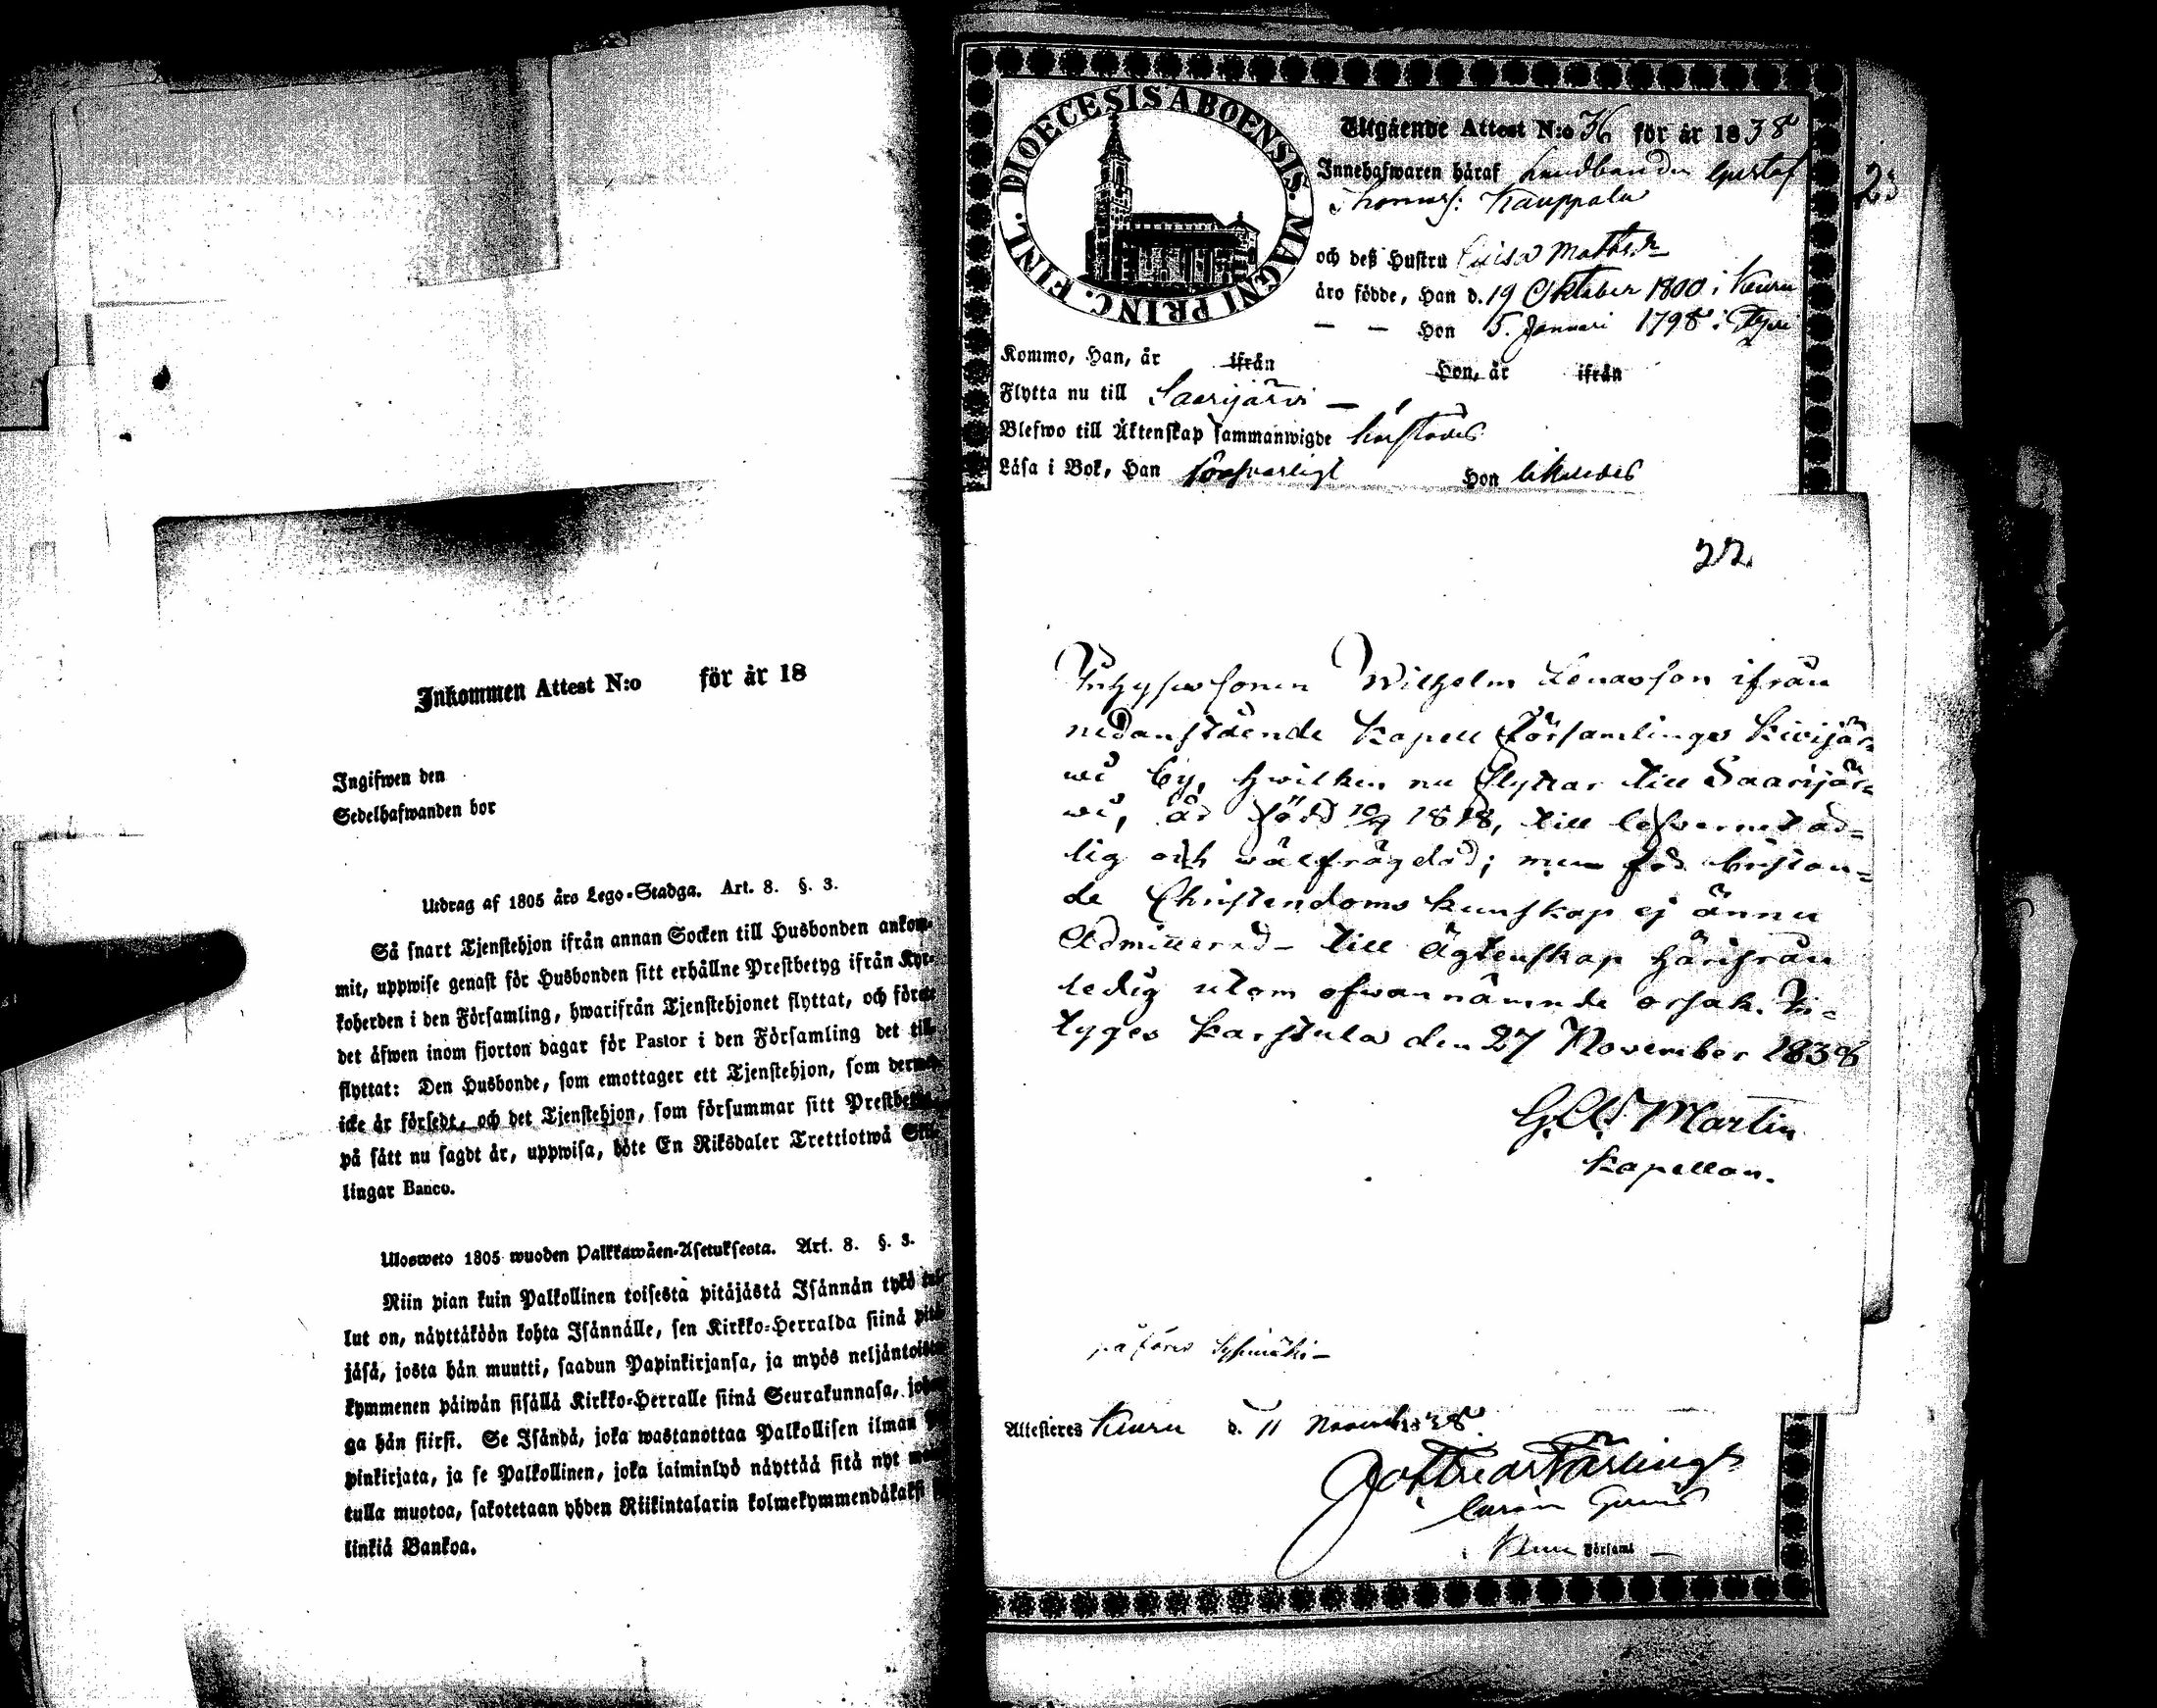 Inkommen Attest N:o för år 18
Ingifwen den
Sedelhafwanden bor
Utdrag af 1805 års Lego-Stadga. Art. 8. §. 3.
Så snart Tjenstehjon ifrån annan Socken till Husbonden ankom-
mit, uppwise genast för Husbonden sitt erhållne Prestbetyg ifrån Kyr-
koherden i den Församling, hwarifrån Tjenstehjonet flyttat, och förete
det äfwen inom fjorton dagar för Pastor i den Församling det till-
flyttat: Den Husbonde, som emottager ett Tjenstehjon, som dermed
icke är försedt, och det Tjenstehjon, som försummar sitt Prestbetyg,
på sätt nu sagdt är, uppwisa, böte En Riksdaler Trettiotwå Skil-
lingar Banco.
Ulosweto 1805 wuoden Palkkawäen-Asetuksesta. Art. 8. §. 3.
Niin pian kuin Palkollinen toisesta pitäjästä Isännän tykö tul-
lut on, näyttäköön kohta Isännälle, sen Kirkko-Herralda siinä pitä-
jäsä, josta hän muutti, saadun Papinkirjansa, ja myös neljäntoista
kymmenen päiwän sisällä Kirkko-Herralle siinä Seurakunnasa,
ga hän siirsi. Se Isändä, joka wastanottaa Palkollisen ilman
pinkirjata, ja se Palkollinen, joka laiminlyö näyttää sitä nyt
tulla muotoa, sakotetaan yhden Riikintalarin kolmekymmendäkaksi
linkiä Bankoa.
DIOECESIS ABOENSIS. MAGNI PRINC. FINL.
Utgående Attest N:o 36 för år 1838
Innehafwaren häraf Landbonden Gustaf
Thomass: Kauppala
och deß Hustru Caisa Matts.dr
äro födde, Han d. 19 Oktober 1800 i Keuru
— — Hon 5. Januari 1798 i
23
Kommo, Han, år ifrån Hon, år ifrån
Flytta nu till Saarijärvi —
Blefwo till Äktenskap sammanwigde härstädes
Läsa i Bok, Han försvarligt Hon likaledes
22.
Inhyses sonen Wilhelm Lenasson ifrån
nedanstående Kapell Församlings Kivijär-
wi by, hwilken nu flyttar till Saarijär-
wi, är född 10/9 1818, till lefvernet är-
lig och wälfrägdad; men för bristan-
de Christendoms kunskap ej ännu
Admitterad – till Ägtenskap härifrån
ledig utom ofwannämnde orsak. Be-
tyges Karstula den 27 November 1838
G. A. Martin
Kapellan.
påföres
Attesteres Keuru d. 11 November 1838.
Keuru Församl —